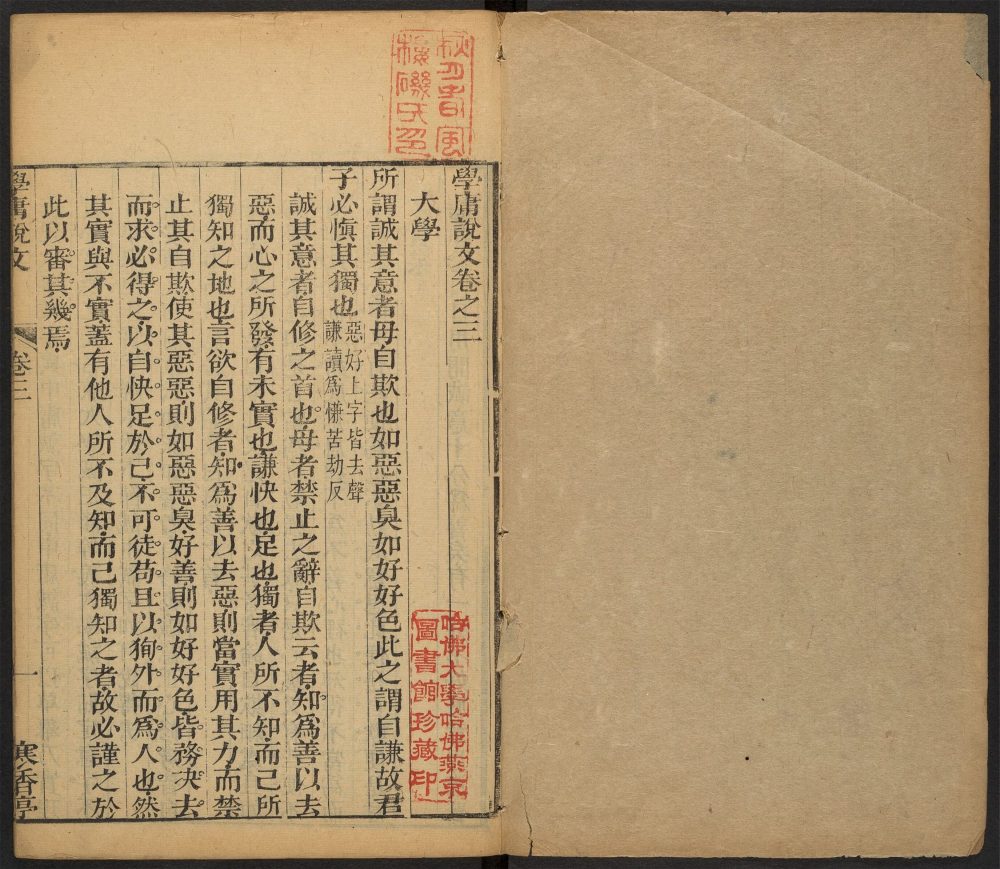 學庸說文卷之三
大學
所謂誠其意者毋自欺也如惡惡臭如好好色此之謂自謙故君
子必愼其獨也
惡好上字皆去聲
謙讀爲慊苦劫反
誠其意者自修之首也毋者禁止之辭自欺云者知爲善以去
惡而心之所發有未實也謙快也足也獨者人所不知而己所
獨知之地也言欲自修者知爲善以去惡則當實用其力而禁
止其自欺使其惡惡則如惡惡臭好善則如好好色皆務决去
而求必得之以自快足於己不可徒苟且以狥外而爲人也然
其實與不實蓋有他人所不及知而己獨知之者故必謹之於
此以審其幾焉
學庸說文
卷三
一
寒香亭
秋月春風
樓磯氏印
哈佛大學哈佛燕京
圖書館珍藏印